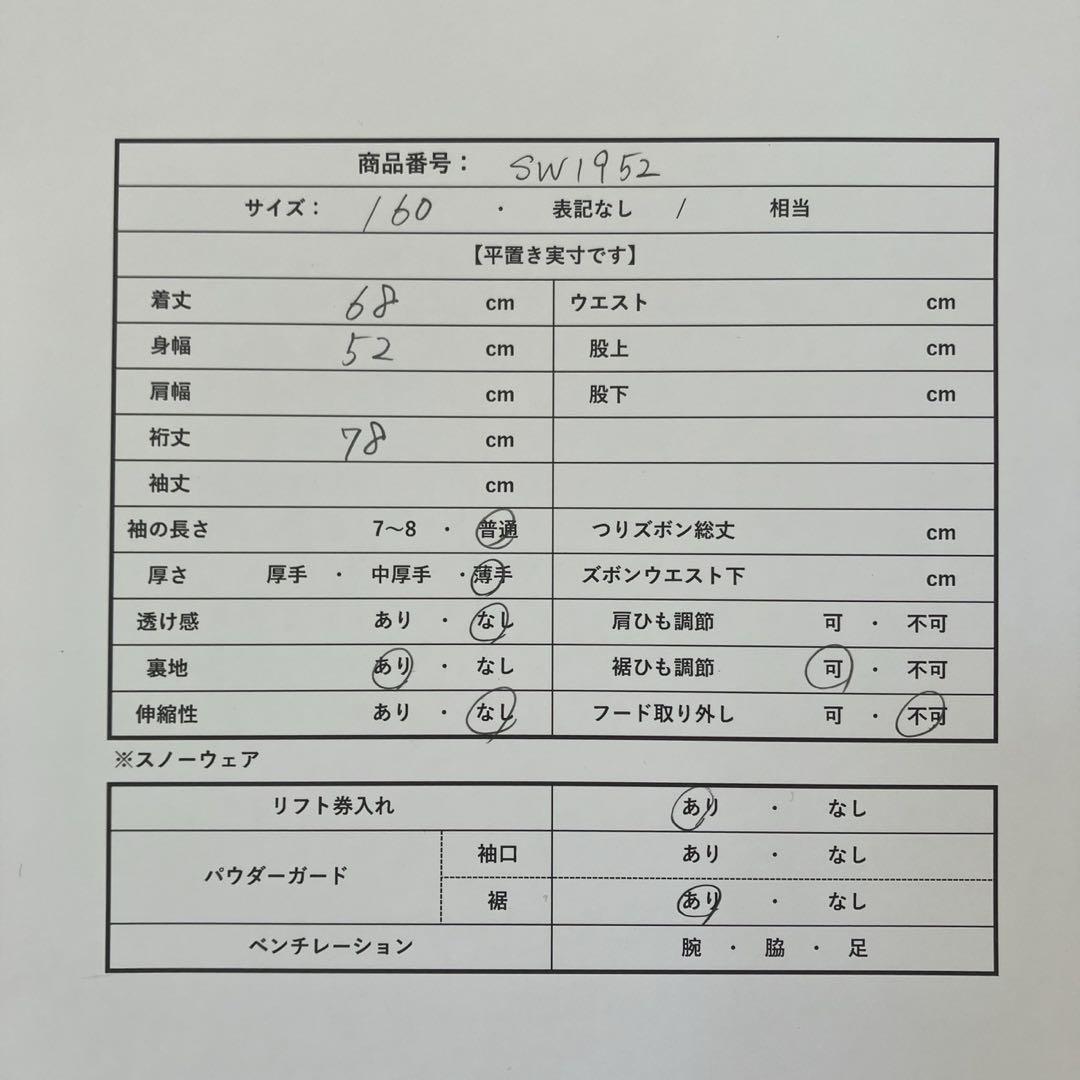 商品番号： SW1952
サイズ： 160 ・ 表記なし / 相当
【平置き実寸です】
着丈 68 cm ウエスト cm
身幅 52 cm 股上 cm
肩幅 cm 股下 cm
裄丈 78 cm
袖丈 cm
袖の長さ 7〜8 ・ 普通 つりズボン総丈 cm
厚さ 厚手 ・ 中厚手 ・ 薄手 ズボンウエスト下 cm
透け感 あり ・ なし 肩ひも調節 可 ・ 不可
裏地 あり ・ なし 裾ひも調節 可 ・ 不可
伸縮性 あり ・ なし フード取り外し 可 ・ 不可
※スノーウェア
リフト券入れ あり ・ なし
パウダーガード 袖口 あり ・ なし
裾 あり ・ なし
ベンチレーション 腕 ・ 脇 ・ 足